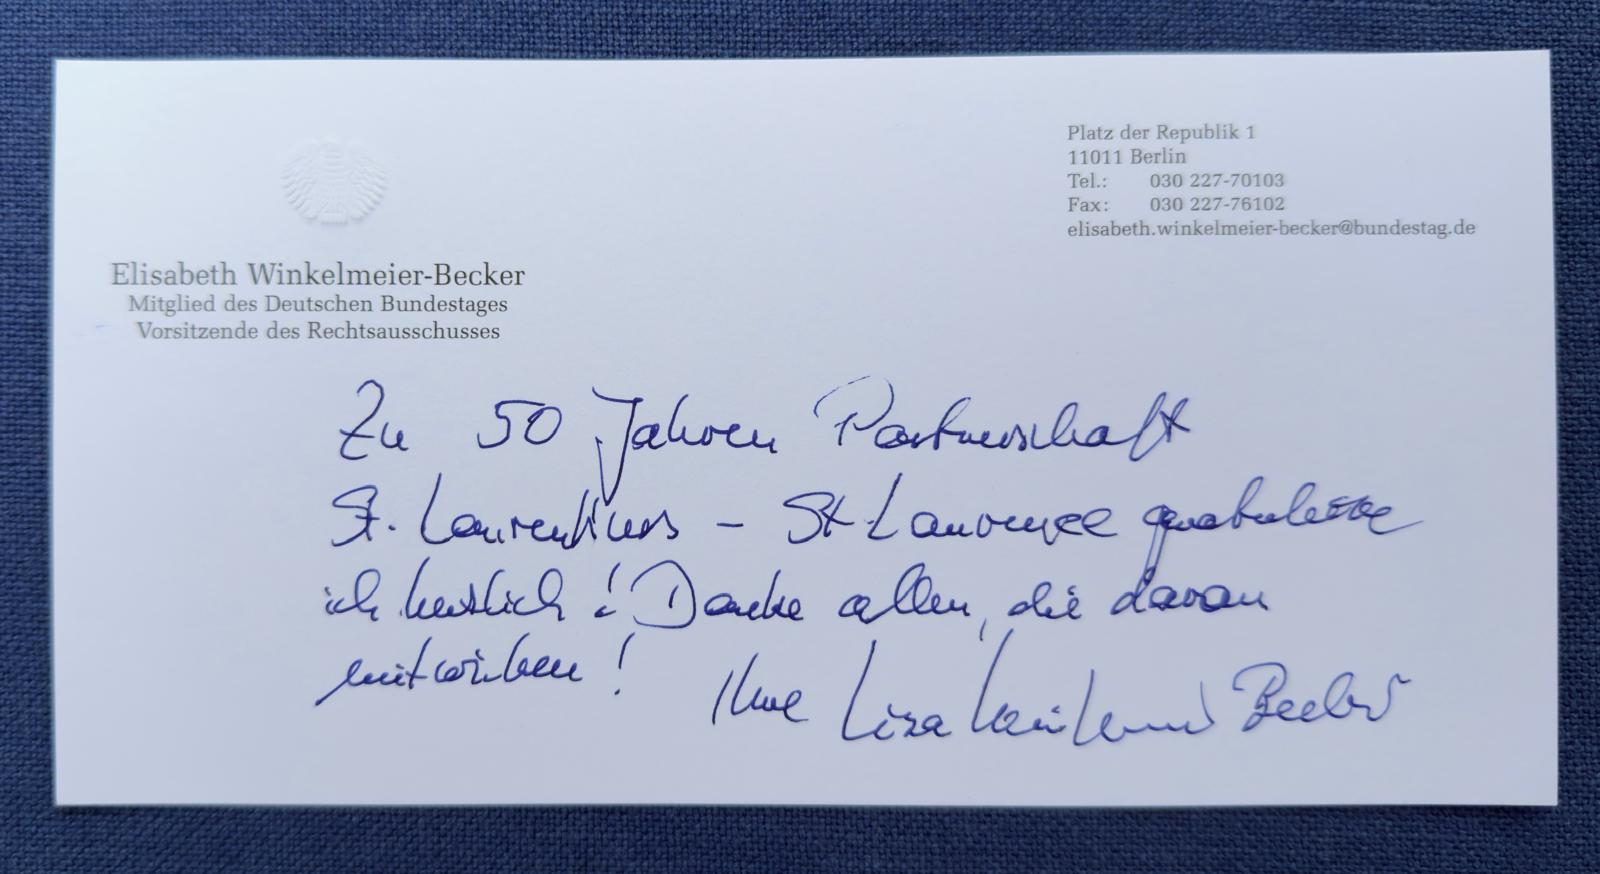 Platz der Republik 1
11011 Berlin
Tel.: 030 227-70103
Fax: 030 227-76102
elisabeth.winkelmeier-becker@bundestag.de
Elisabeth Winkelmeier-Becker
Mitglied des Deutschen Bundestages
Vorsitzende des Rechtsausschusses
Zu 50 Jahren Partnerschaft
St. Laurentius – St Laurence gratuliere
ich herzlich! Danke allen, die daran
mitwirken!
Ihre Lisa Winkelmeier Becker